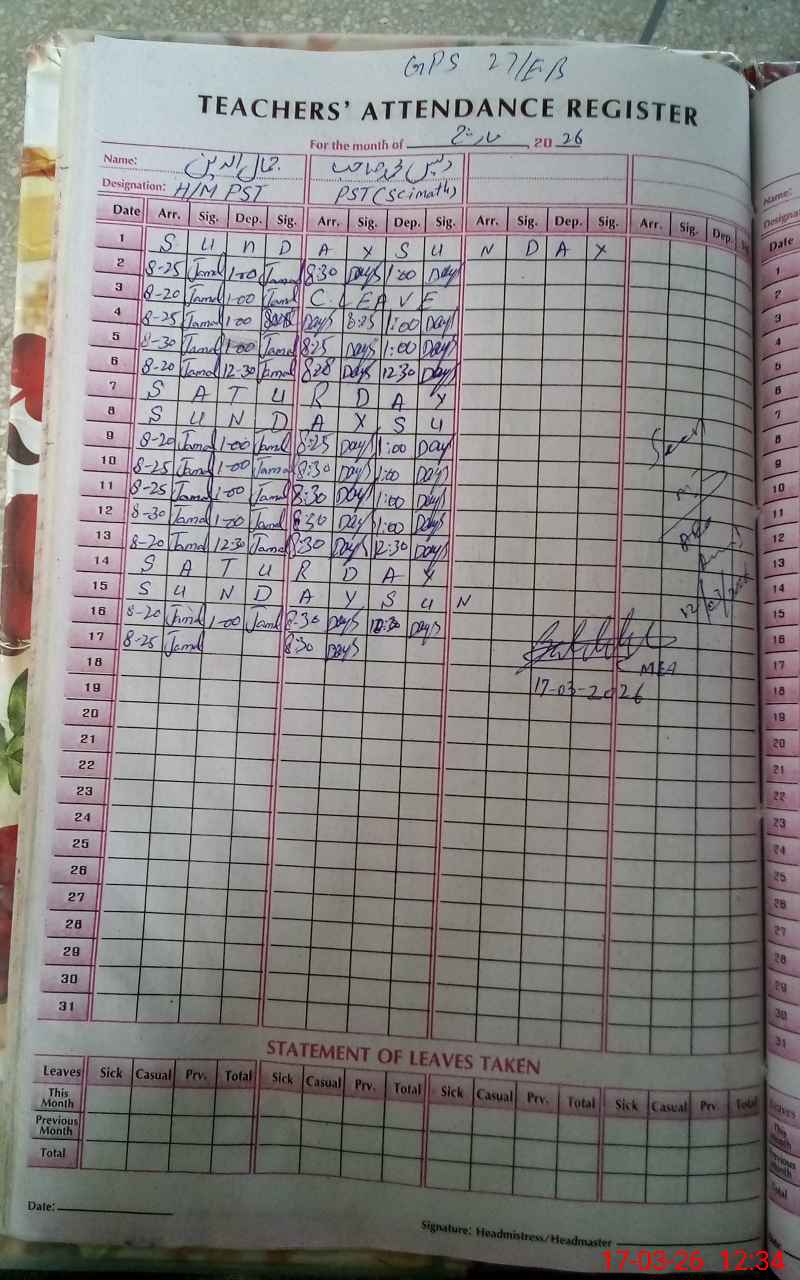 GPS 27/EB
TEACHERS' ATTENDANCE REGISTER
For the month of مارچ, 20 26
Name: جمال الدین
Designation: H/M PST PST (Sci math)
Date Arr. Sig. Dep. Sig. Arr. Sig. Dep. Sig. Arr. Sig. Dep. Sig. Arr. Sig. Dep.
1 S U N D A Y S U N D A Y
2 8-25 Jamal 1-00 Jamal 8:30 Days 1:00 Days
3 8-20 Jamal 1-00 Jamal C. LEAVE
4 8-25 Jamal 1-00 Days 8:25 1:00 Days
5 8-30 Jamal 1-00 Jamal 8:25 Days 1:00 Days
6 8-20 Jamal 12-30 Jamal Days 12:30 Days
7 S A T U R D A Y
8 S U N D A Y S U
9 8-20 Jamal 1-00 Jamal 8:25 Days 1:00 Days
10 8-25 Jamal 1-00 Jamal 8:30 Days 1:00 Days
11 8-25 Jamal 1-00 Jamal 8:30 Days 1:00 Days
12 8-30 Jamal 1-00 Jamal 8:30 Days 1:00 Days
13 8-20 Jamal 12-30 Jamal 8:30 Days 12:30 Days
14 S A T U R D A Y
15 S U N D A Y S U N
16 8-20 Jamal 1-00 Jamal 8:30 Days Days
17 8-25 Jamal 8:30 Days
MEA
17-03-2026
18
19
20
21
22
23
24
25
26
27
28
29
30
31
STATEMENT OF LEAVES TAKEN
Leaves Sick Casual Prv. Total Sick Casual Prv. Total Sick Casual Prv. Total Sick Casual Prv. Total
This Month
Previous Month
Total
Date:
Signature: Headmistress/Headmaster
17-03-26 12:34